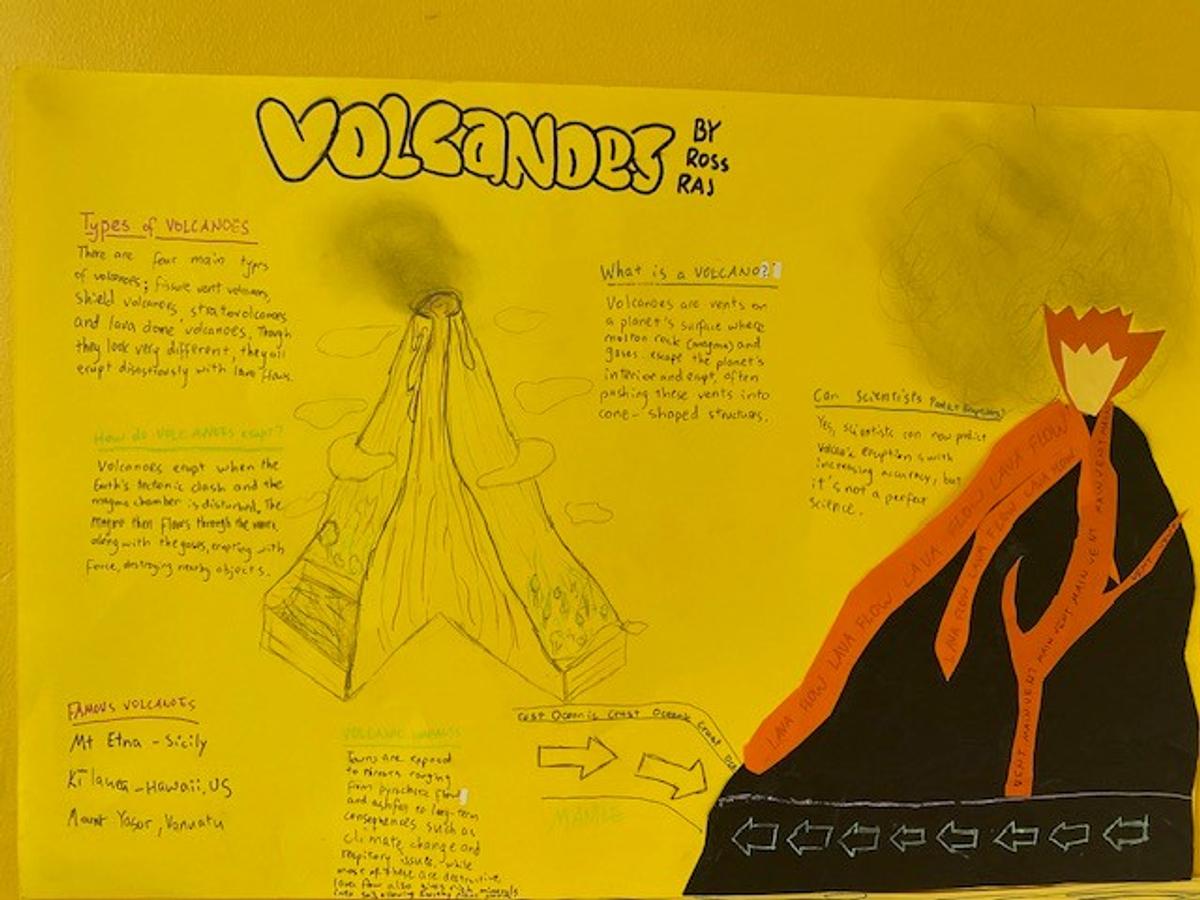 VOLCANOES
BY
ROSS
RAJ
Types of VOLCANOES
There are four main types
of volcanoes; fissure vent volcanoes,
shield volcanoes, stratovolcanoes
and lava dome volcanoes. Though
they look very different, they all
erupt disastrously with lava flows.
How do VOLCANOES erupt?
Volcanoes erupt when the
Earth's tectonic clash and the
magma chamber is disturbed. The
magma then flows through the
along with the gases, erupting with
force, destroying nearby objects.
What is a VOLCANO?
Volcanoes are vents on
a planet's surface where
molten rock (magma) and
gases escape the planet's
interior and erupt, often
pushing these vents into
cone-shaped structures.
Can Scientists Predict Eruptions?
Yes, scientists can now predict
volcanic eruptions with
increasing accuracy, but
it's not a perfect
science.
FAMOUS VOLCANOES
Mt Etna - Sicily
Kīlauea - Hawaii, US
Mount Yasur, Vanuatu
VOLCANIC
Towns are exposed
to ranging
from pyroclastic flow
and ashfall to long-term
consequences such as
climate change and
issues. While
most of these are destructive,
lava flow also gives rich minerals
Oceanic Crust Oceanic Crust
MANTLE
LAVA FLOW LAVA FLOW LAVA FLOW LAVA FLOW LAVA FLOW
LAVA FLOW LAVA FLOW LAVA FLOW
VENT MAIN VENT MAIN VENT MAIN VENT MAIN VENT MAIN VENT
VENT